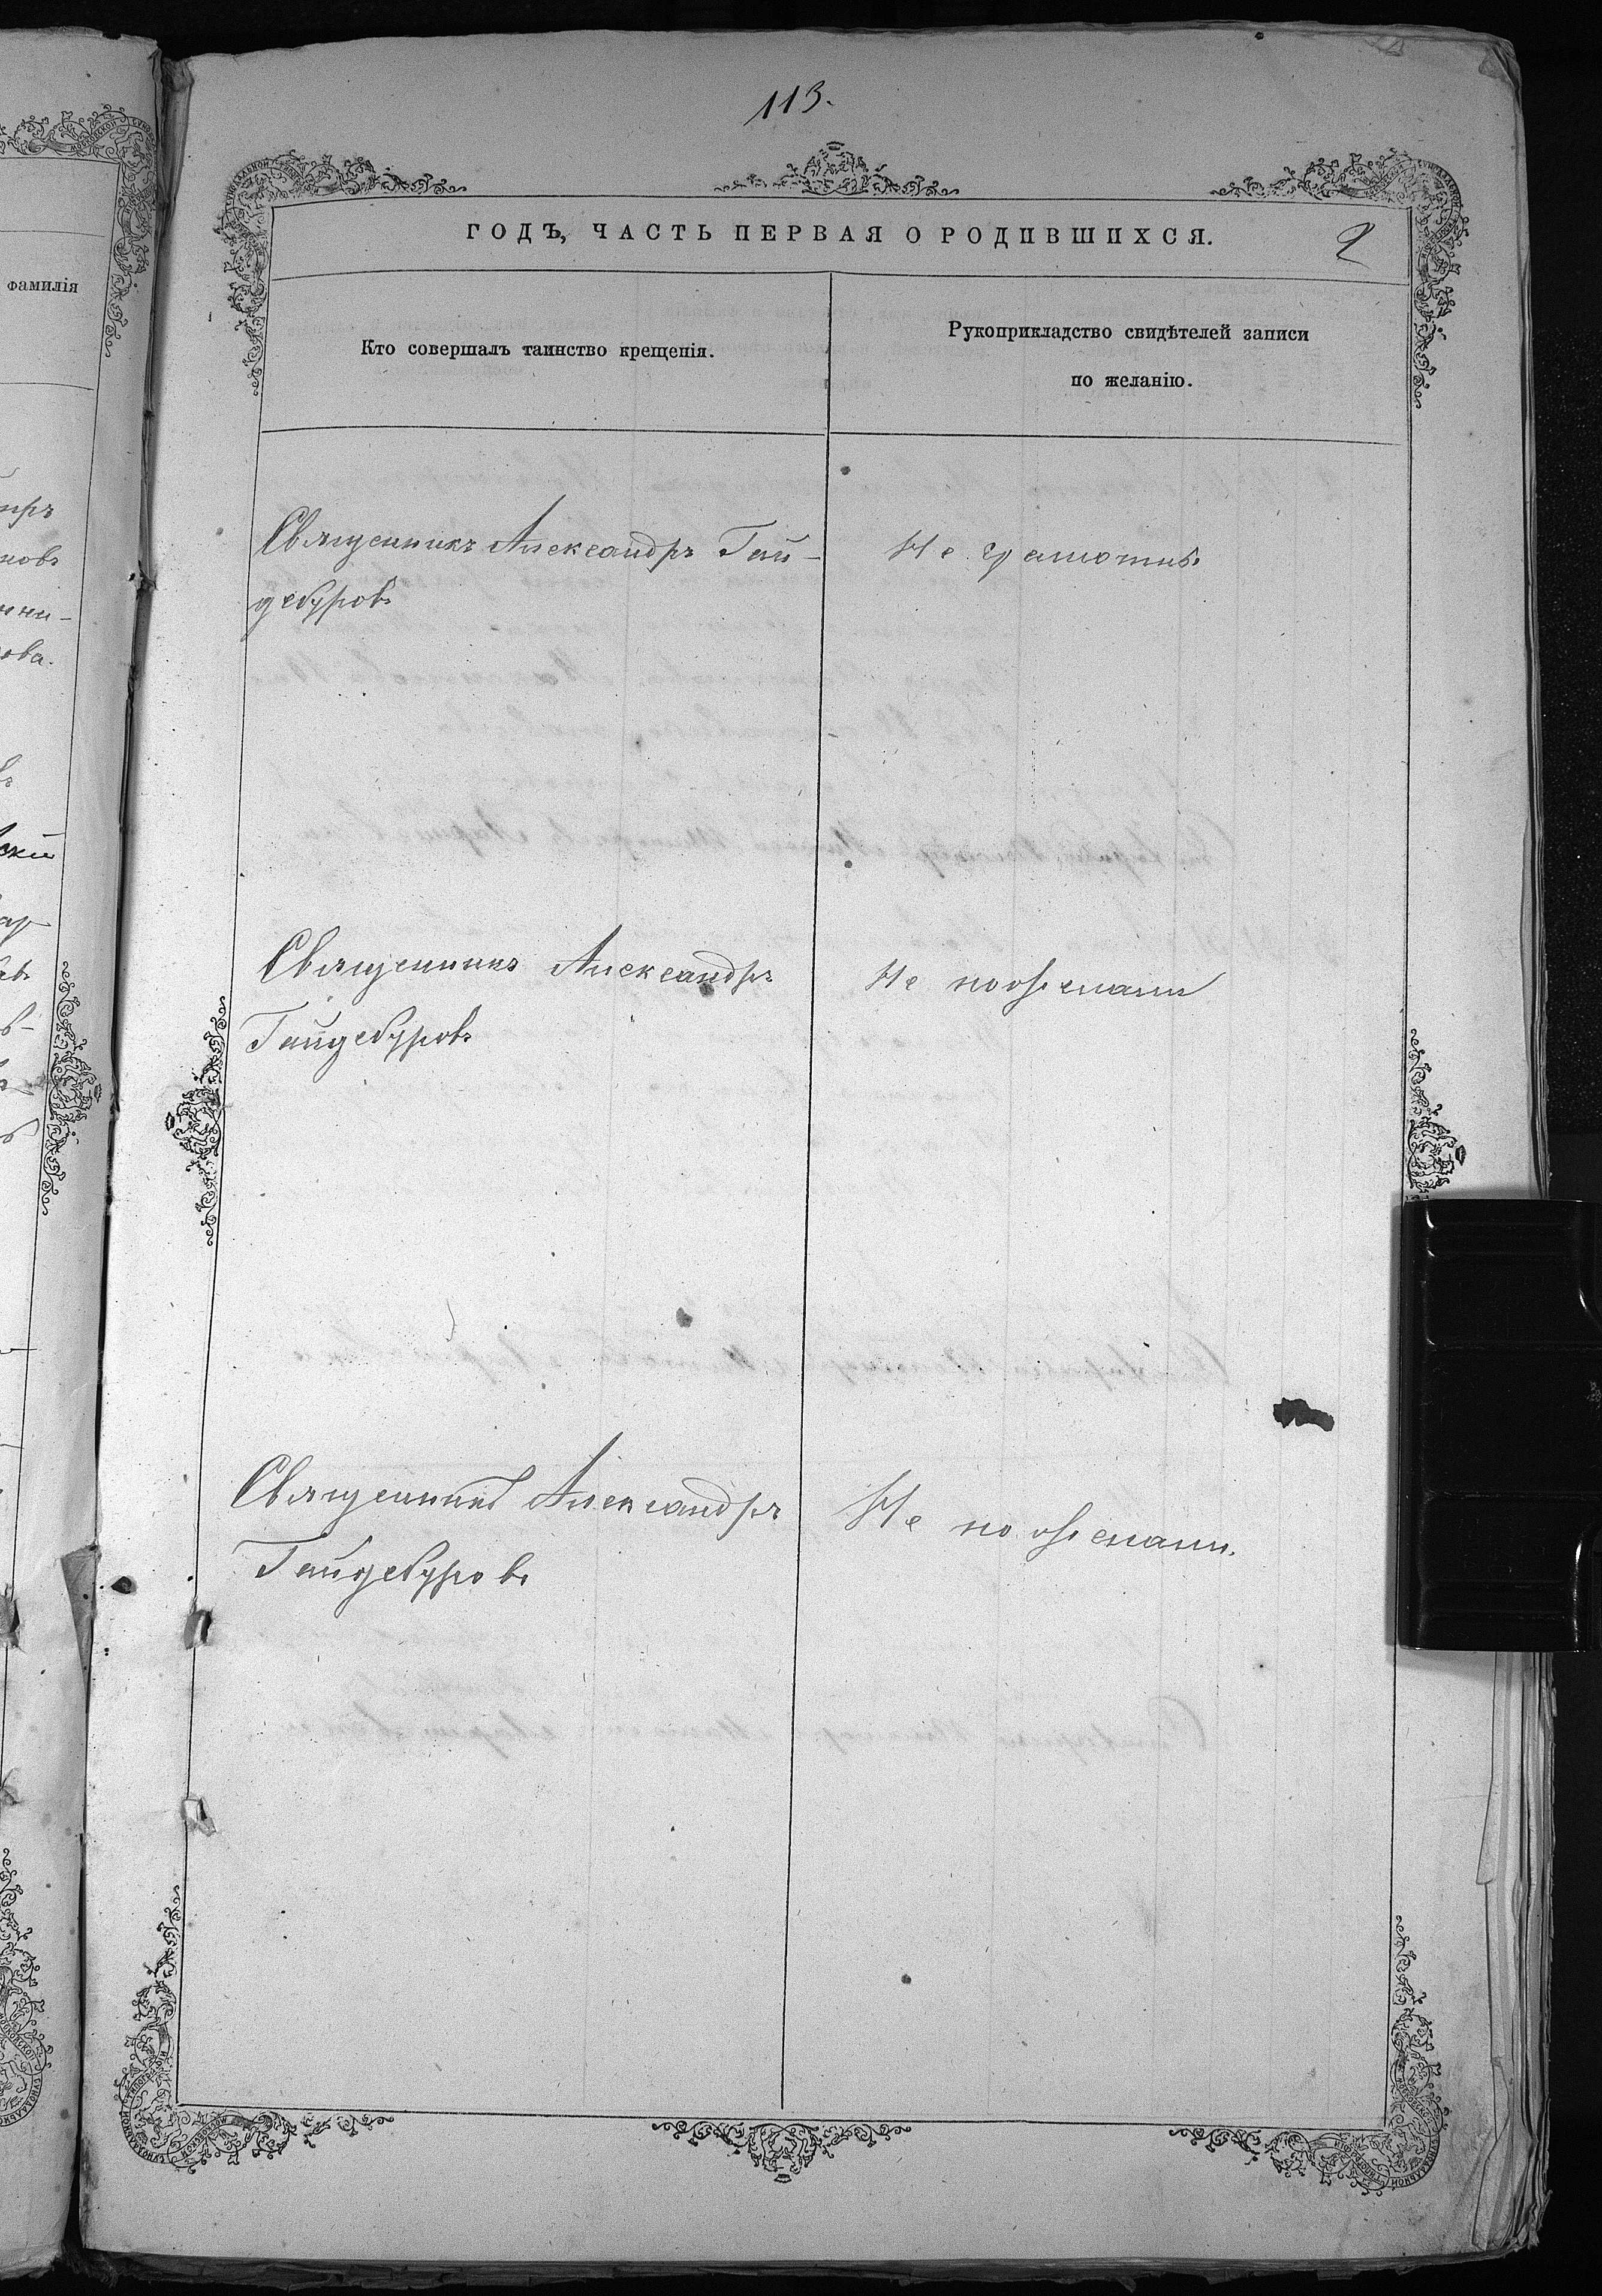 113.
ГОДЪ, ЧАСТЬ ПЕРВАЯ О РОДИВШИХСЯ.
2
фамилія
Кто совершалъ таинство крещенія.
Рукоприкладство свидѣтелей записи
по желанію.
Священникъ Александръ Гай-
дебуровъ
Не грамотны
Священникъ Александръ
Гайдебуровъ
Не пожелали
Священникъ Александръ
Гайдебуровъ
Не пожелали.